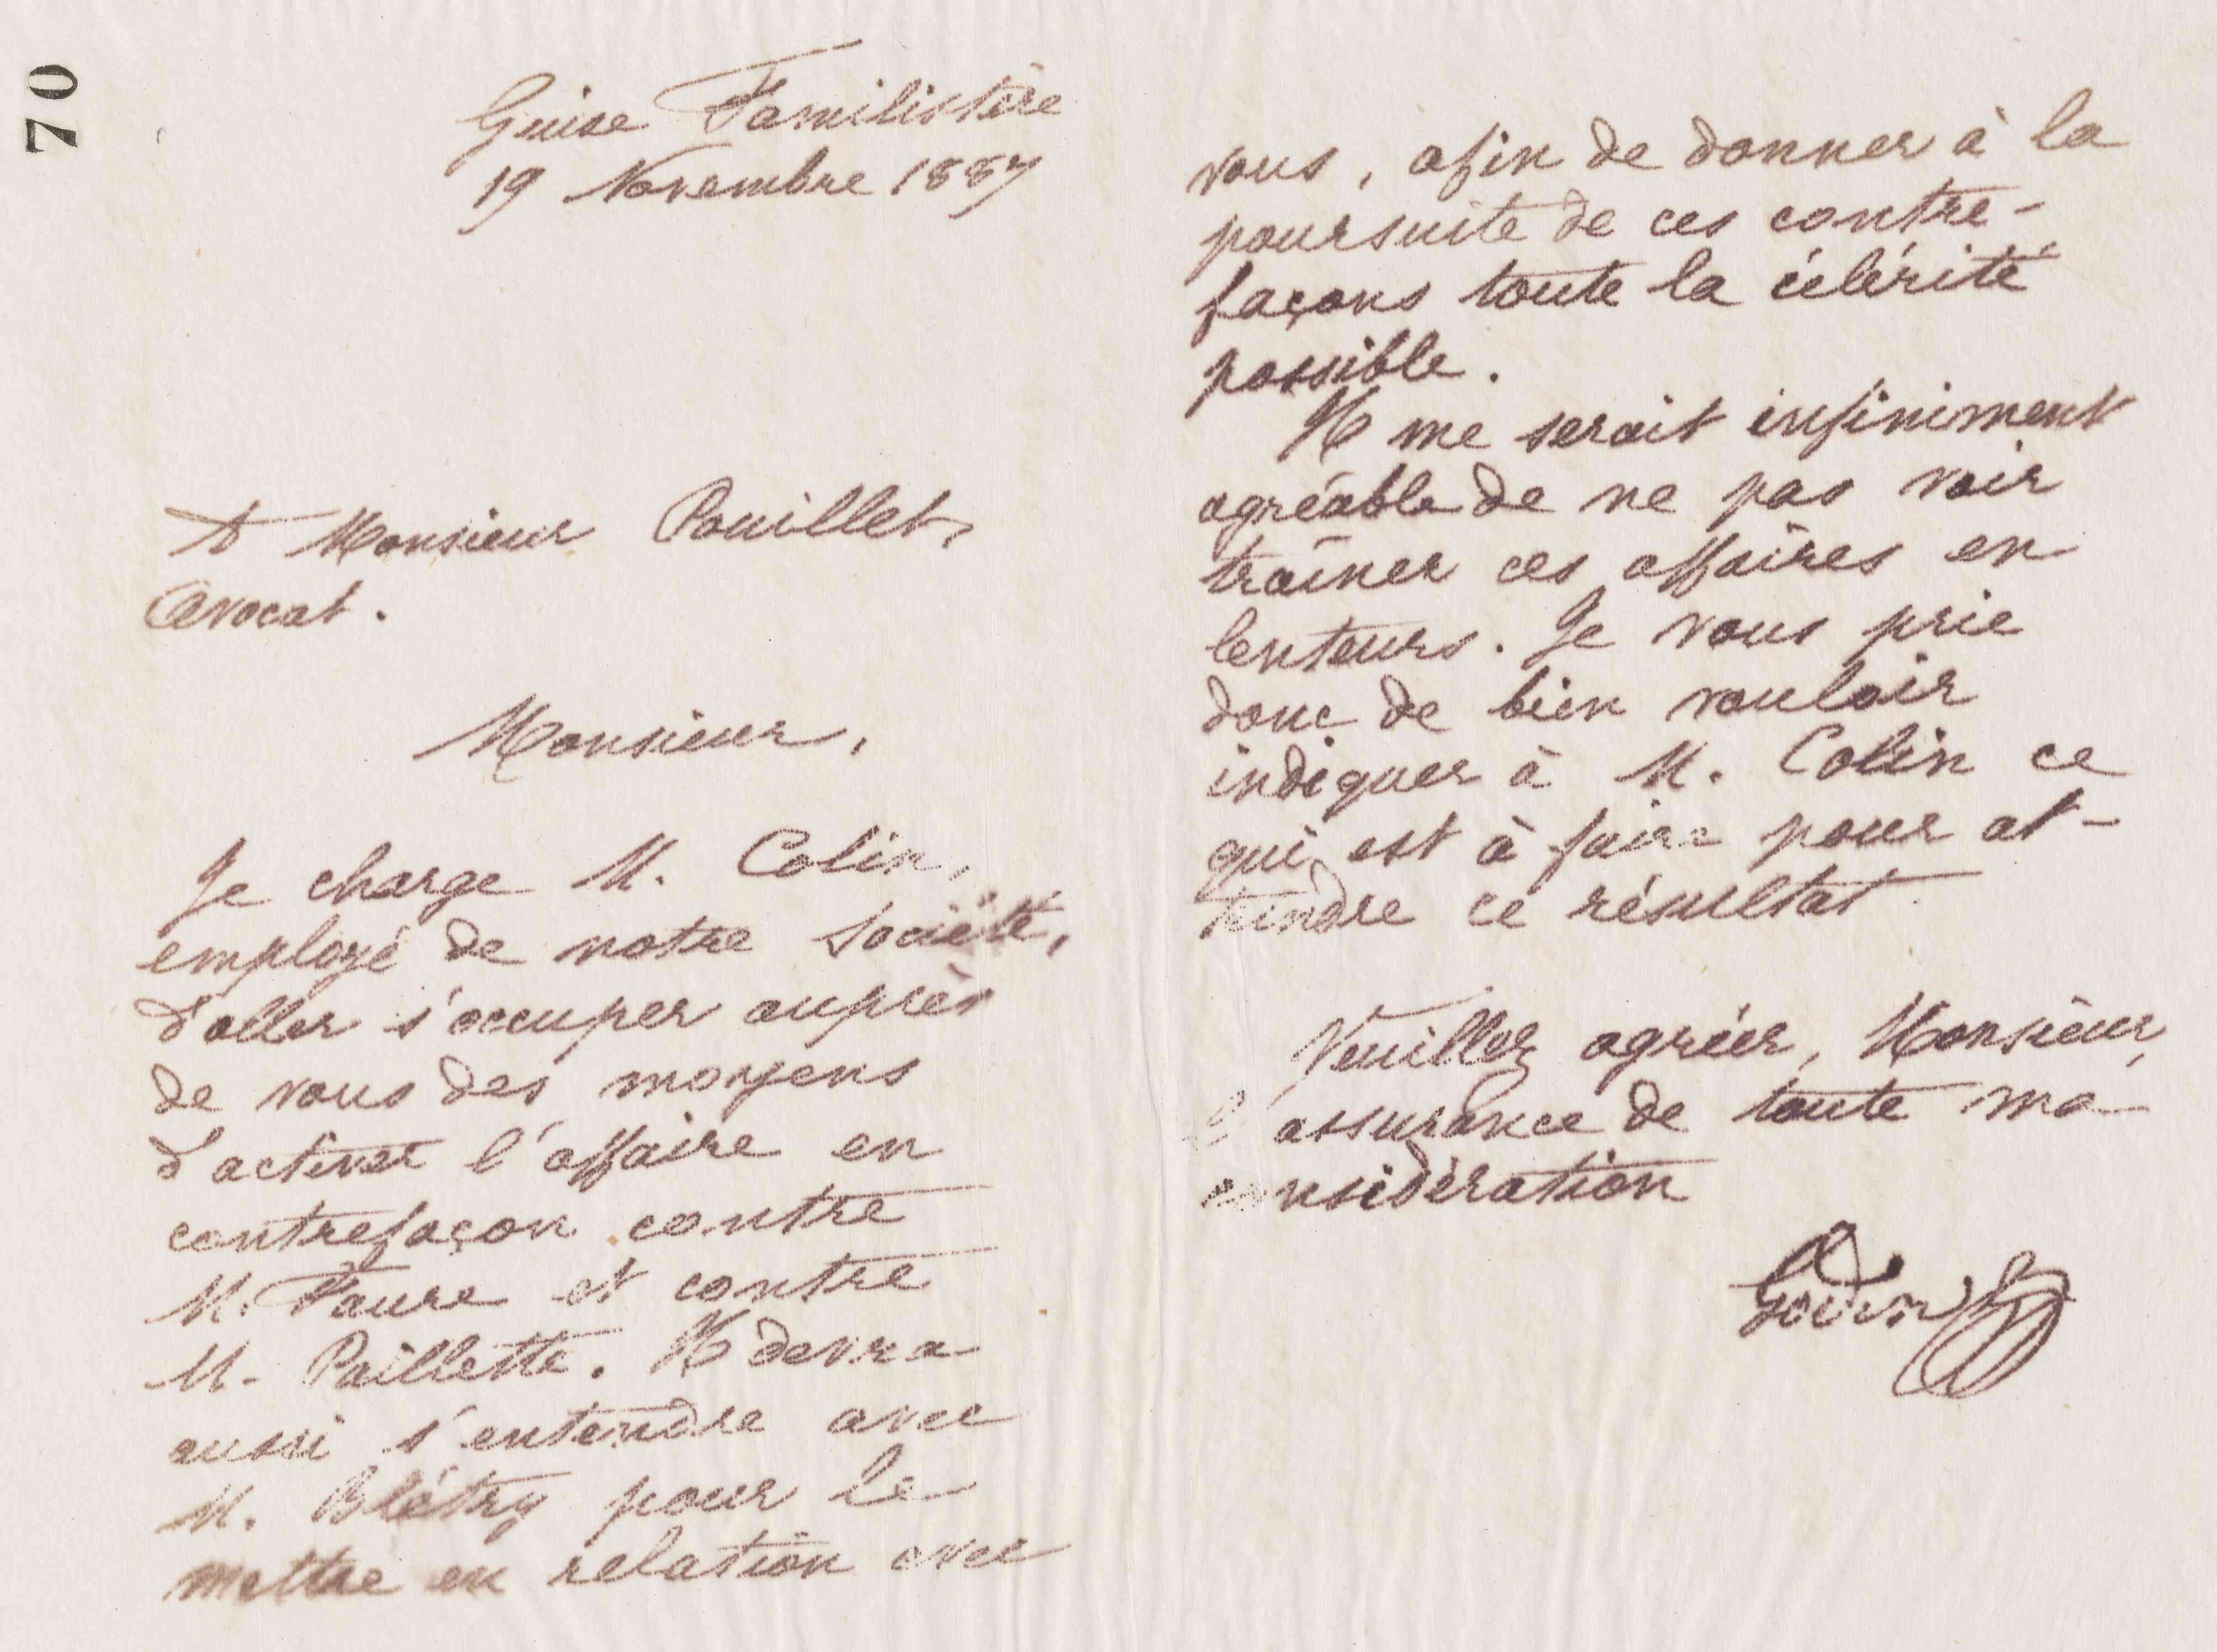 70
Guise Familistère
19 Novembre 1887
A Monsieur Pouillet,
Avocat.
Monsieur,
Je charge M. Colin,
employé de notre Société,
d'aller s'occuper auprès
de vous des moyens
d'activer l'affaire en
contrefaçon contre
M. Faure et contre
M. Paillette. Il devra
aussi s'entendre avec
M. Blétry pour le
mettre en relation avec
vous, afin de donner à la
poursuite de ces contre-
façons toute la célérité
possible.
Il me serait infiniment
agréable de ne pas voir
traîner ces affaires en
lenteurs. Je vous prie
donc de bien vouloir
indiquer à M. Colin ce
qui est à faire pour at-
teindre ce résultat.
Veuillez agréer, Monsieur,
l'assurance de toute ma
considération
Godin